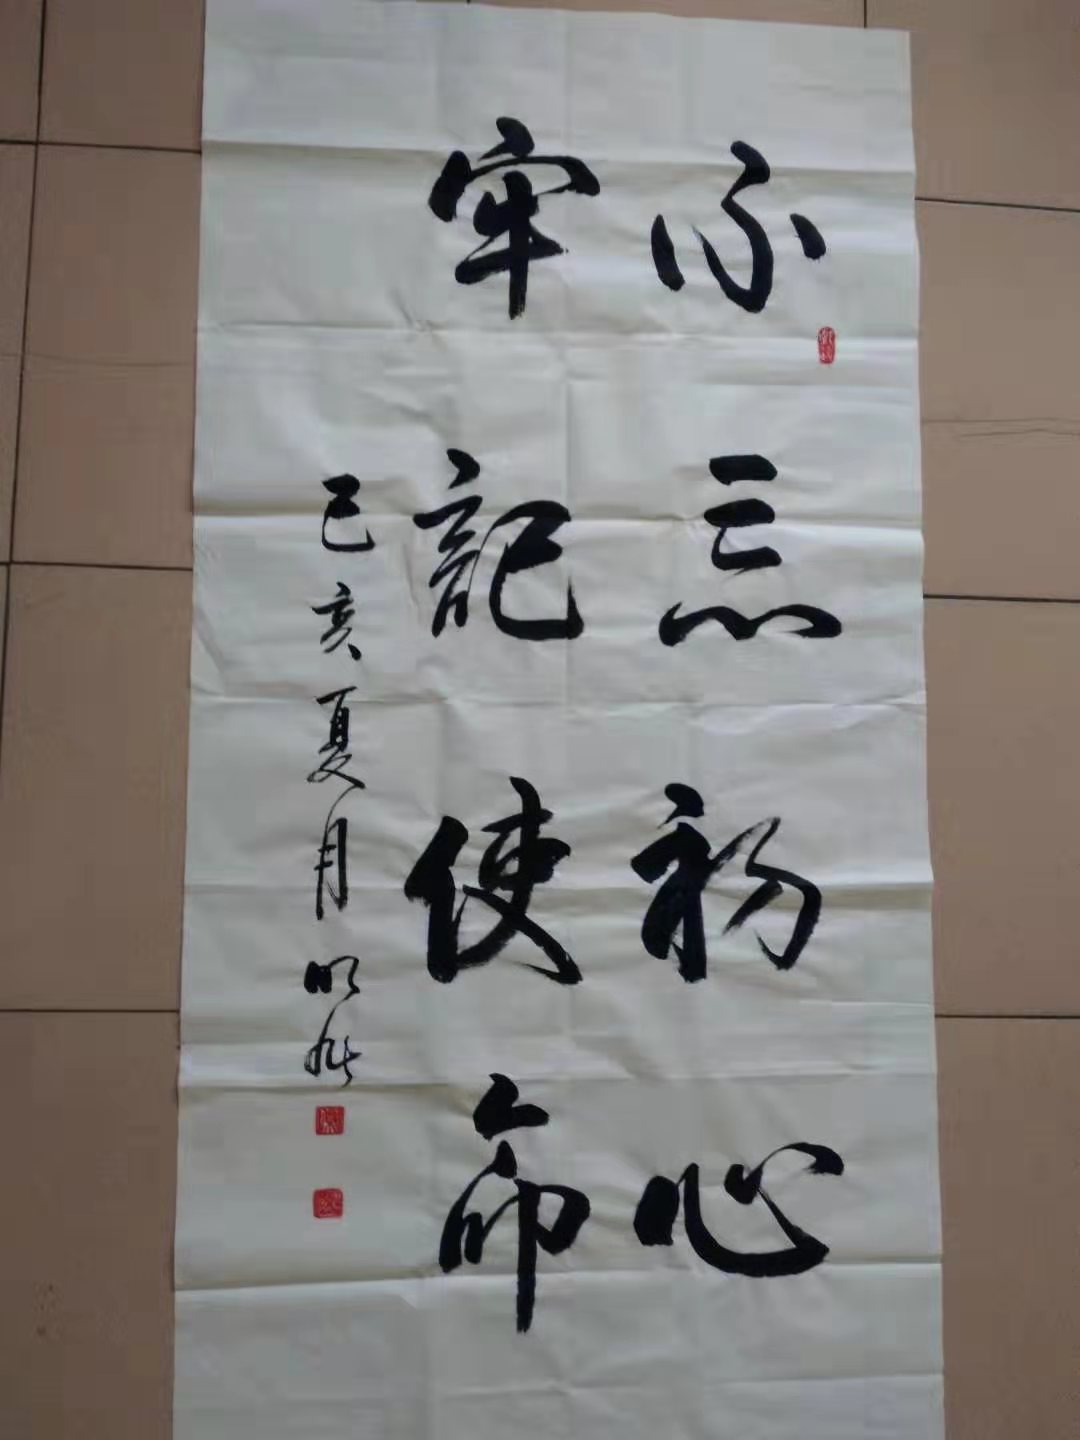 不忘初心
牢記使命
己亥夏月明